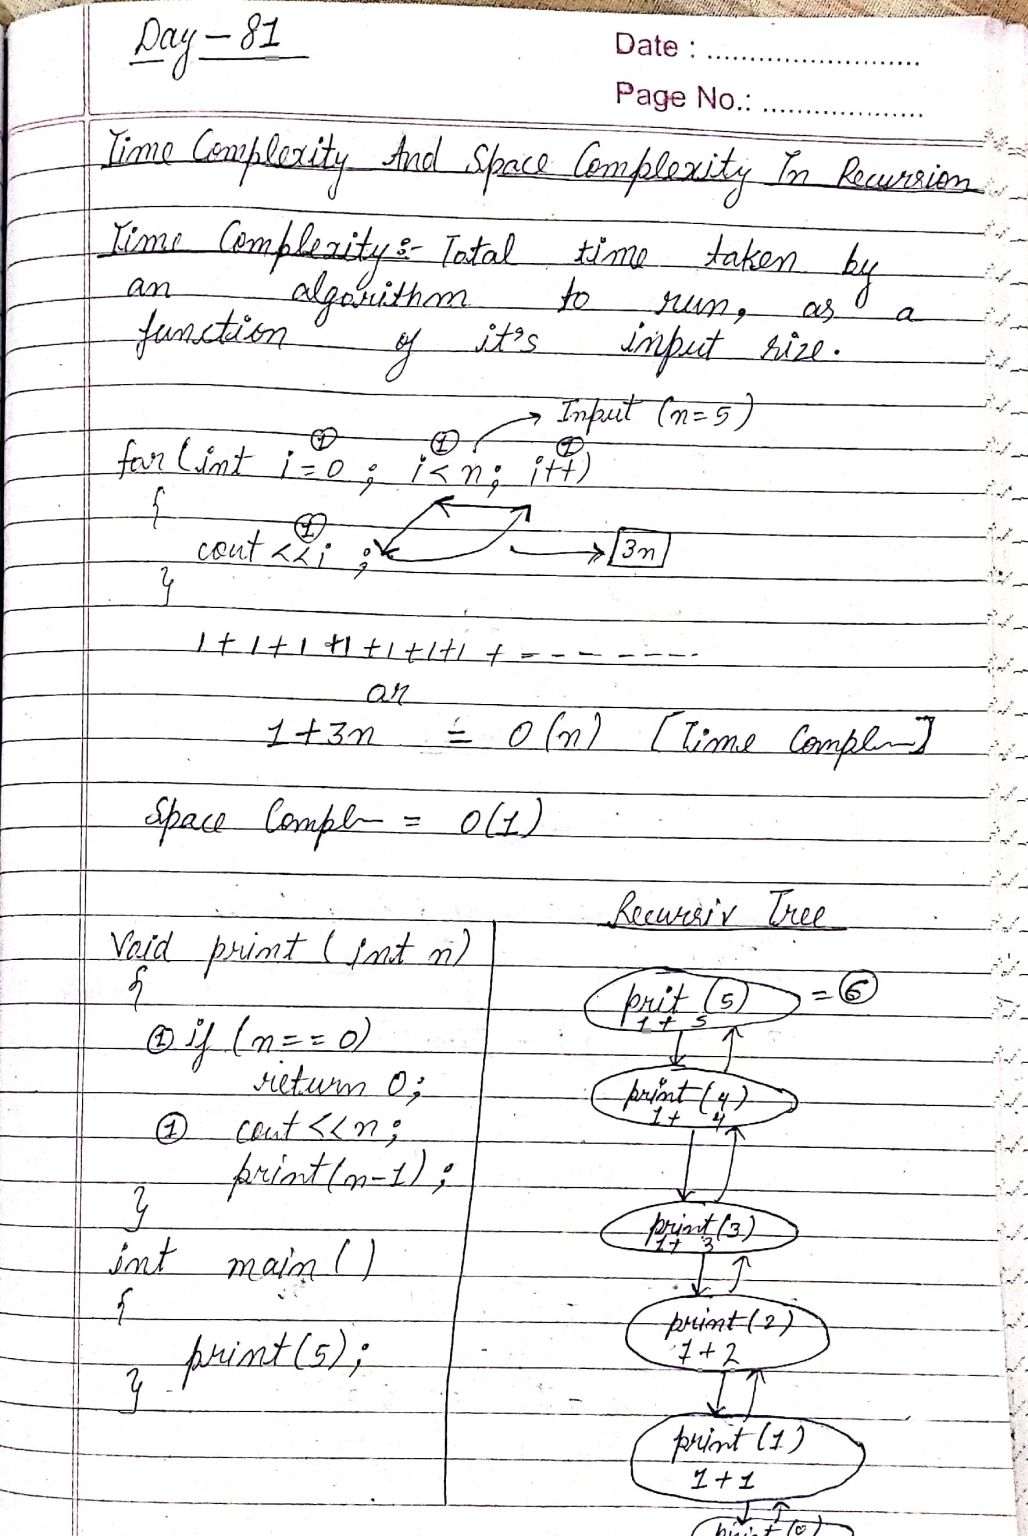 Day - 81
Date : ..........................
Page No.: ....................
Time Complexity And Space Complexity In Recursion
Time Complexity :- Total time taken by
an algorithm to run, as a
function of it's input size.
→ Input (n=5)
① ① ①
for (int i=0 ; i<n; i++)
{
①
cout <<i ; → 3n
}
1+1+1+1+1+1+1 + - - - - - - -
or
1+3n = O(n) [Time Compl]
Space Compl = O(1)
Recursiv Tree
Void print (int n)
{
① if (n==0)
return 0;
① cout <<n;
print(n-1);
}
int main ()
{
print(5);
}
prit (5) = ⑥
1 + 5
print (4)
1+ 4
print (3)
1+ 3
print (2)
1+2
print (1)
1+1
print (0)